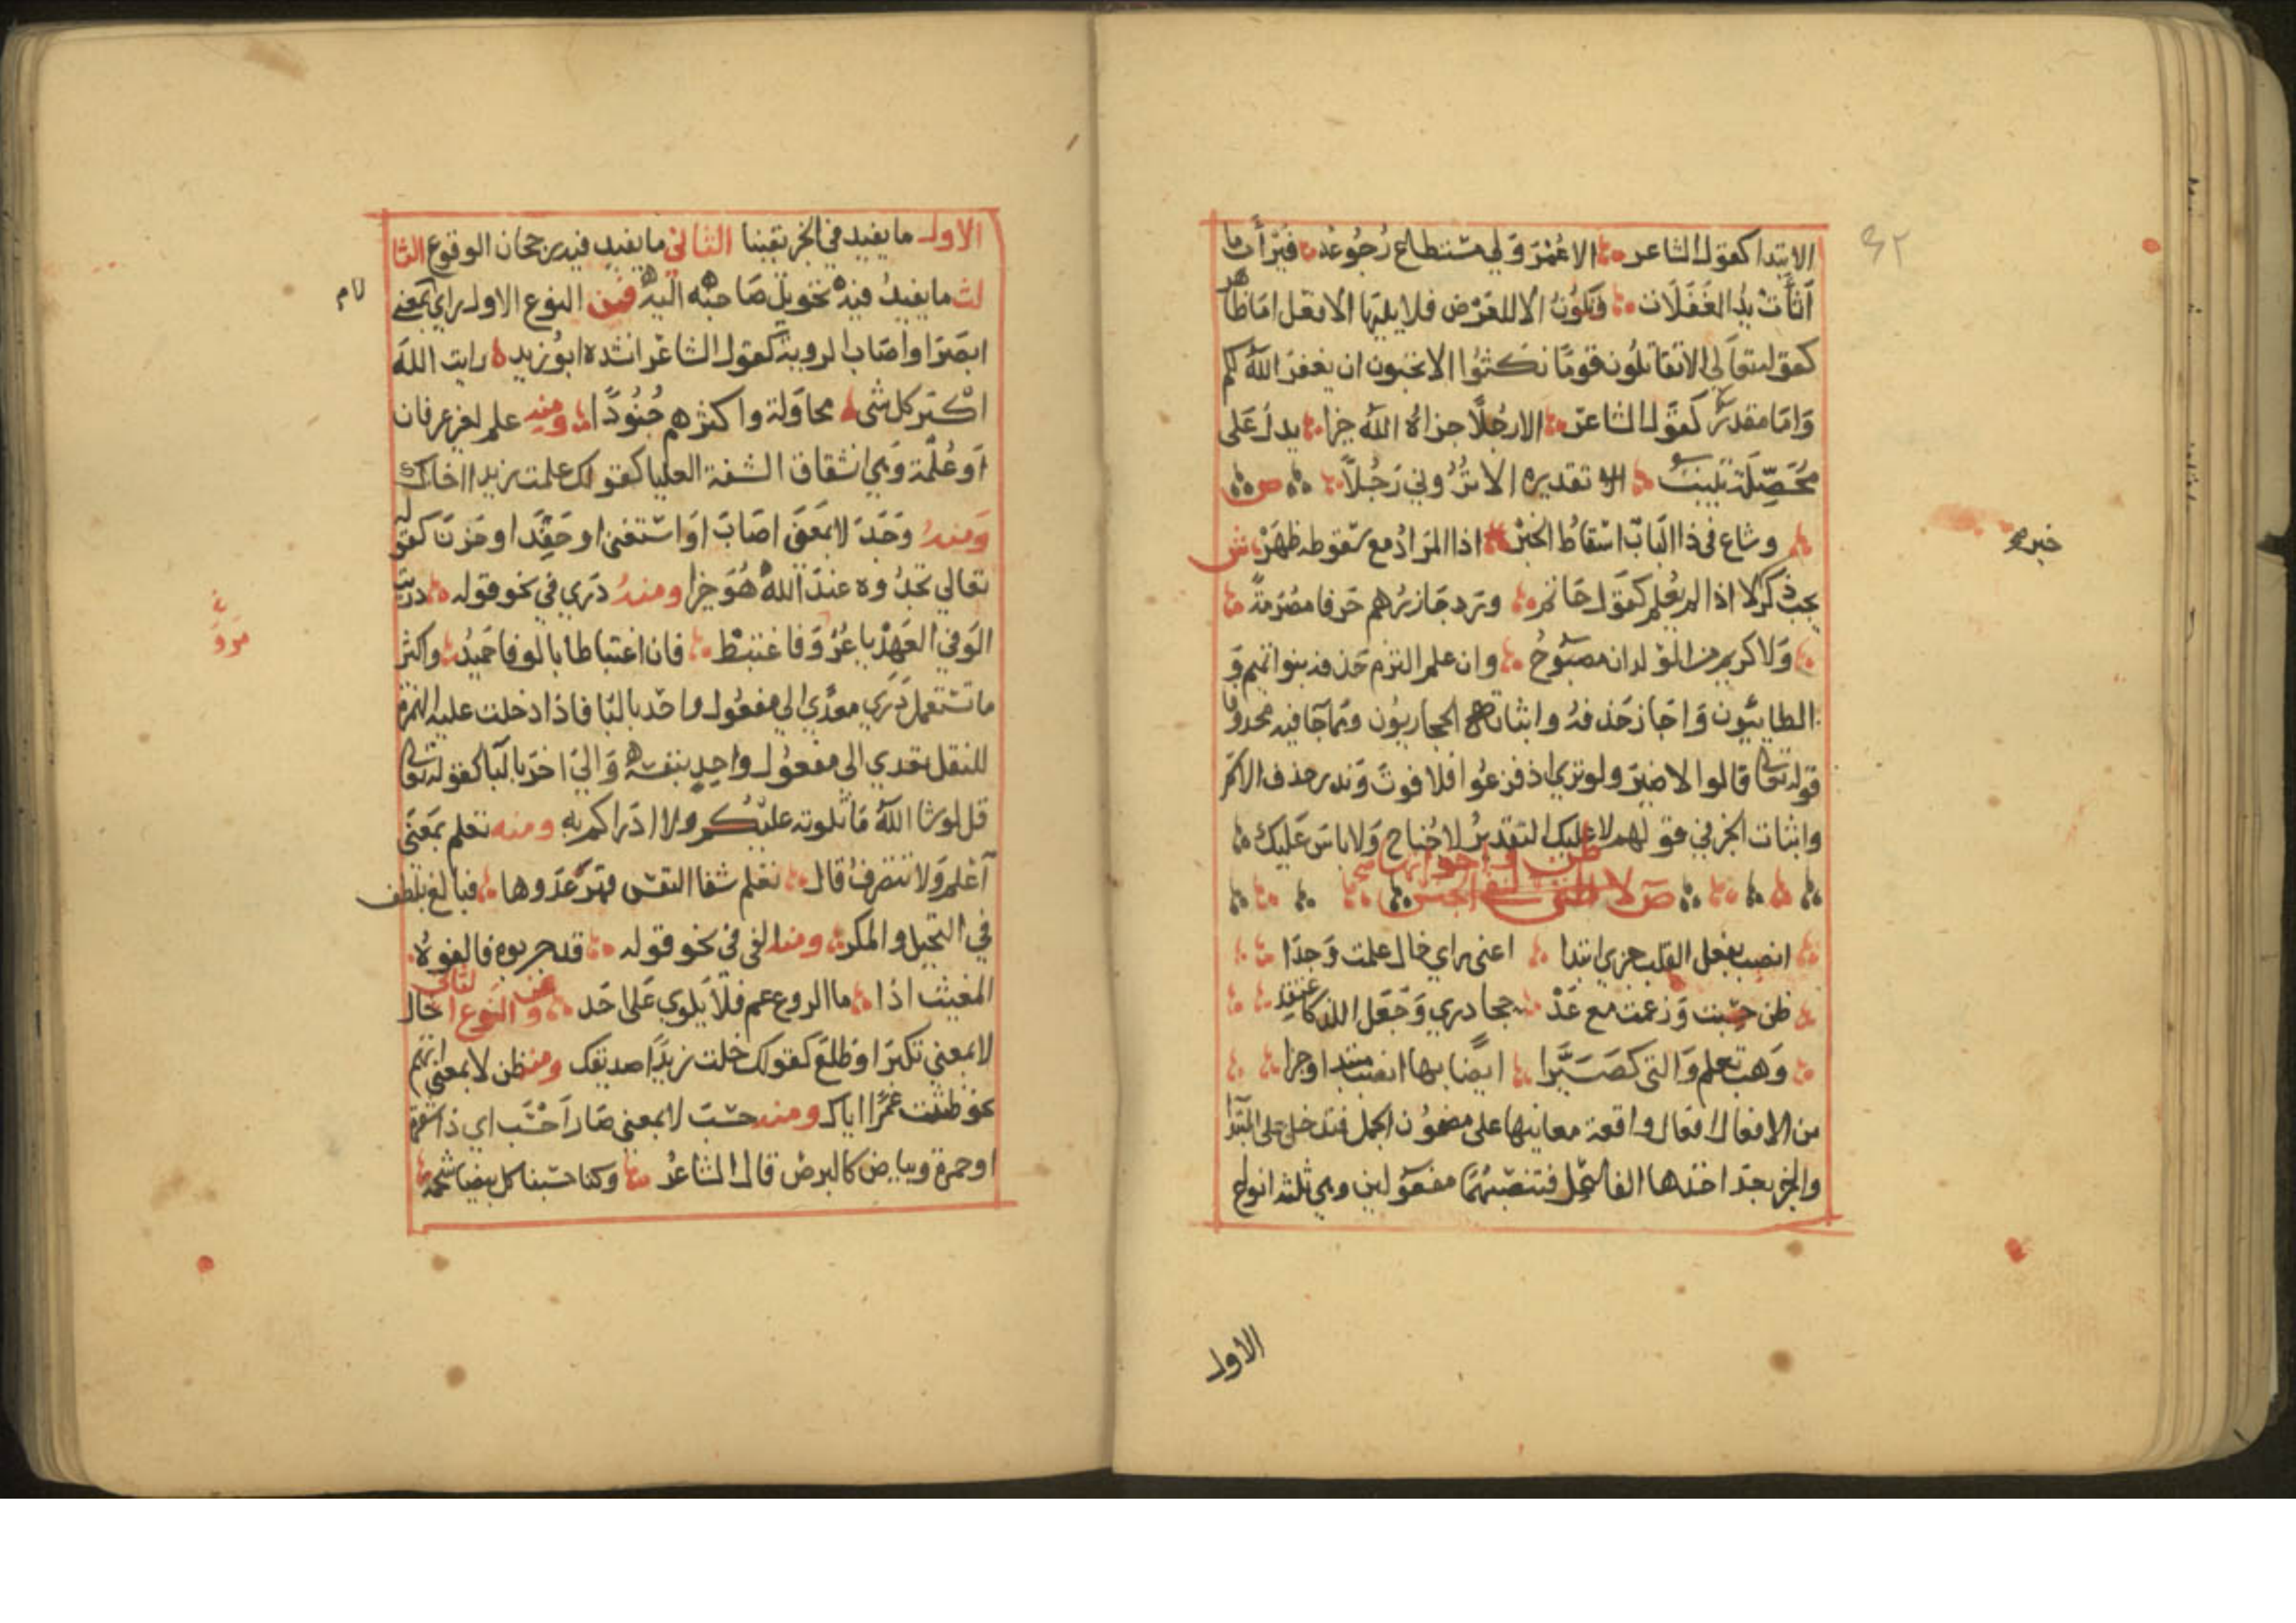 ٤٢
الابتدا كقول الشاعر الا عُمْرَ وَلي مستطاع رُجُوعُه فيَرْأَبَ ما
أثأت يدُ الغَفَلَات وَتكونُ الا للعَرْض فلا يليها الا فعل اما ظاهر
كقوله تعالى الا تقاتلون قومًا نكثوا الا تحبون ان يغفر الله لكم
وَامّا مقدر كقول الشاعر الا رجُلًا جزاهُ الله خيرا يدل عَلى
مُحَصِّلَة تبيتُ تقديره الا ترُوني رَجُلًا ص
وشاع في ذا الباب اسْقاطُ الخبرْ اذا المرادُ مع سقوطه ظهَرْ ش
يجب ذكر لا اذا لم يُعلم كقول حاتم وَرد جَازرُهم حَرفا مصَرمةً
وَلا كريم من الولدان مصبوحُ وان علم التزم حَذفه بنوا تميم وَ
الطاييُون وَاجَاز حَذفهُ واثباته الحجازيون ومما جا فيه محذوفا
قوله تعالى قالوا لا ضير ولو تري اذ فزعُوا فلا فوتَ وَندر حذف الاسم
واثبات الخبر في قولهم لا عليك التقديرُ لا جُناح وَلا باسَ عَليك
ظن واخواتها
ص لا التي لنفي الجنس
انصب بفعل القلب جزي ابتدا اعني راي خال علمت وَجدَا
ظن حسبت وَزعمت مع عَدْ حجا دري وَجَعَل اللذ كاعتقد
وَهب تعلم وَالتي كصَيَّرا ايضًا بها انصب مبتدا وخبرا
من الافعال افعال واقعة معانيها على مضمُون الجمل فتدخل على المبتدا
والخبر بعدَ اخذها الفاعِل فتنصبهُما مفعولين وهي ثلثه انواع
خبره
الاول
الاول ما يفيد في الخبر يقينا الثاني ما يفيد فيه رجحان الوقوع الثا
لث ما يفيدُ فيه تحويل صَاحبُه اليه فمن النوع الاول راي لا بمعنى
ابصَرَ او اصَاب الروية كقول الشاعر انشده ابوُزيد رايت الله
اكبَر كل شي محاوَلة واكثرهم جُنودًا ومنه علم لغير عرفان
اَو عُلمَة وَهي انشقاق الشفة العليا كقولك علمت زيدا اخاك
وَمنهُ وَجَدَ لا بمَعنَى اصَابَ اوَ استغنى او حَقِدَ او حَزنَ كقوله
تعالي تجدُوه عندَ اللهُ هُوَ خيرا ومنهُ دَري في نحو قوله دريت
الوَفي العَهدُ يا عُرْوَ فاغتبط فان اغتباطا بالوفا حَميدُ واكثر
ما تستعمل دَرَي معدَّي الي مفعُول واحد بالبا فاذا دخلت عليه الهمزة
للنقل تعدي الي مفعول واحدٍ بنفسه وَالي اخرَ بالبَا كقوله تعالى
قل لو شا اللهُ مَا تلوته عليكم ولا ادرَاكم به ومنه تعلم بمَعنَى
اَعْلم وَلا تتصَرفُ قال تعَلم شفا النفس قهرَ عَدوها فبالغ بلطف
في التحيل والمكر ومنه الفى في نحو قوله قد جربوه فالفوهُ
المغيث اذا ما الروع عم فلا يَلوي عَلى اَحَد ومن النوع الثاني خال
لا بمعنى تكبَر او ظلَعَ كقولك خلت زيدًا صديقك ومنه ظن لا بمعنى اتهم
نحو ظننت عَمْرًا اياك ومنه حسبَ لا بمعنى صَار اَحْسَب اي ذا شقرة
او حمرة وبياض كالبرصْ قال الشاعرُ وكنا حسبنا كل بيضا شحمة
لام